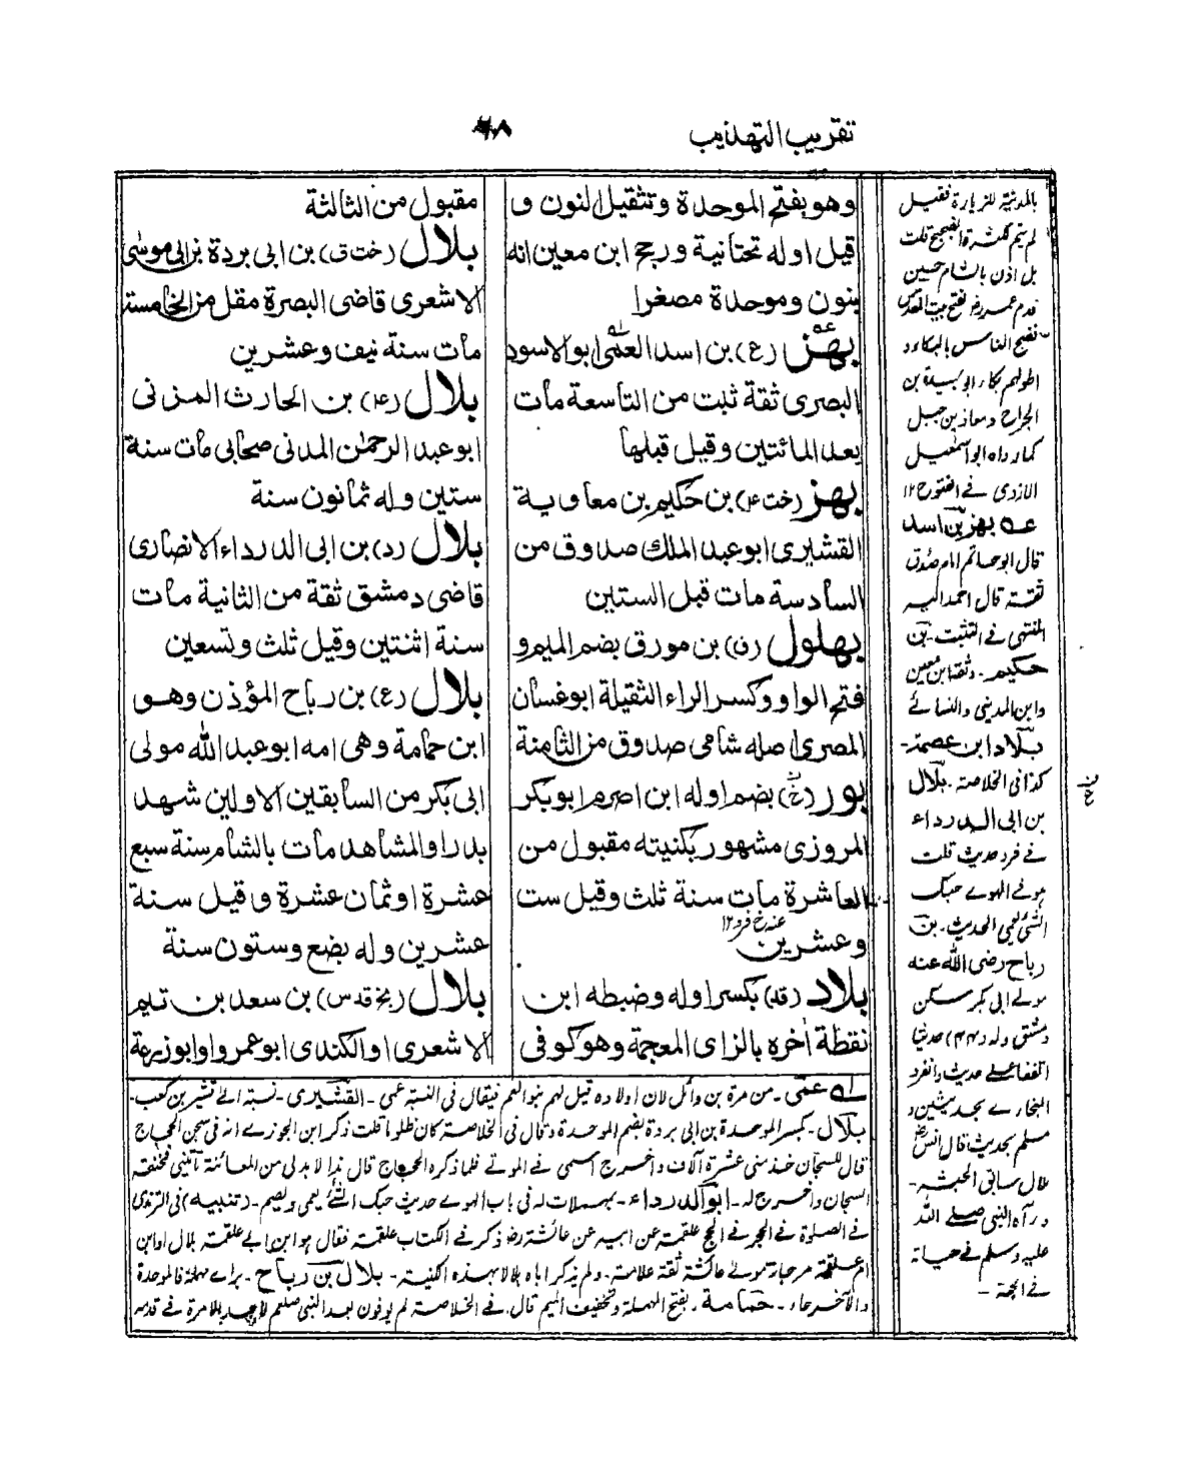 تقريب التهذيب
٤٨
وهو بفتح الموحدة وتثقيل النون و
قيل اوله تحتانية ورجح ابن معين انه
بنون وموحدة مصغرا
بهز (ع) بن اسد العمى ابو الاسود
البصرى ثقة ثبت من التاسعة مات
بعد المائتين وقيل قبلها
بهز (خت ۴) بن حكيم بن معاوية
القشيرى ابو عبد الملك صدوق من
السادسة مات قبل الستين
بهلول (ق) بن مورق بضم الميم و
فتح الواو وكسر الراء الثقيلة ابو غسان
المصرى اصله شامى صدوق من الثامنة
بور (خ) بضم اوله ابن اصرم ابو بكر
المروزى مشهور بكنيته مقبول من
العاشرة مات سنة ثلث وقيل ست
وعشرين
عنه خ فرد ١٢
بلاد (قد) بكسر اوله وضبطه ابن
نقطة اخره بالزاى المعجمة وهو كوفى
مقبول من الثالثة
بلال (خت ق) بن ابى بردة بن ابى موسى
الاشعرى قاضى البصرة مقل من الخامسة
مات سنة نيف وعشرين
بلال (۴) بن الحارث المزنى
ابو عبد الرحمن المدنى صحابى مات سنة
ستين وله ثمانون سنة
بلال (د) بن ابى الدرداء الانصارى
قاضى دمشق ثقة من الثانية مات
سنة اثنتين وقيل ثلث وتسعين
بلال (ع) بن رباح المؤذن وهو
ابن حمامة وهى امه ابو عبد الله مولى
ابى بكر من السابقين الاولين شهد
بدرا والمشاهد مات بالشام سنة سبع
عشرة او ثمان عشرة وقيل سنة
عشرين وله بضع وستون سنة
بلال (بخ قد س) بن سعد بن تميم
الاشعرى او الكندى ابو عمرو او ابو زرعة
بالمدينة للزيارة فقيل
لم يتم كلمة الا بضجيج قلت
بل اذن بالشام حين
قدم عمر رض فتح بيت المقدس
فضج الناس بالبكاء و
اطولهم بكاء ابو عبيدة بن
الجراح و معاذ بن جبل
كما رواه ابو اسمعيل
الازدى فى الفتوح ١٢
عه بهز بن اسد
قال ابو حاتم امام صدوق
ثقة قال احمد اليه
المنتهى فى التثبت - بن
حكيم - وثقه ابن معين
وابن المدينى والنسائى
بلاد ابن عصمة -
كذا فى الخلاصة - بلال
بن ابى الدرداء
له فرد حديث قلت
هو فى الهوى حبك
الشئ يعمى الحديث - بن
رباح رضى الله عنه
مولى ابى بكر سكن
دمشق وله (۴۴) حديثا
اتفقا على حديث وانفرد
البخارى بحديثين و
مسلم بحديث قال انس
بلال سابق الحبشة -
ورآه النبى صلى الله
عليه وسلم فى حياته
فى الجنة -
له عمى - من مرة بن وائل لان اولاده قيل لهم بنو العم فيقال فى النسبة عمى - القشيرى - نسبة الى قشير بن كعب -
بلال - بكسر الموحدة بن ابى بردة بضم الموحدة وقال فى الخلاصة كان ظلوما قلت ذكر ابن الجوزى انه فى سجن الحجاج
قال للسجان خذ منى عشرة آلاف واخرج اسمى فى الموتى فلما ذكره الحجاج قال لا بد لى من المعائنة فخنقه
السجان واخرج له - ابو الدرداء - بمهملات له فى باب الهوى حديث حبك الشئ يعمى ويصم - (تنبيه) فى الترمذى
فى الصلوة فى الحجر فى الحج علقمة عن ابيه عن عائشة رض ذكر فى الكتاب علقمة فقال هو ابن ابى علقمة بلال او ابن
ام علقمة مرجانة مولى عائشة ثقة علامة - ولم يذكر اباه بلالا بهذه الكنية - بلال بن رباح - براء مهملة فالموحدة
والآخر حاء - حمامة - بفتح المهملة وتخفيف الميم قال فى الخلاصة لم يؤذن بعد النبى صلعم لاحد الا مرة فى قدمه